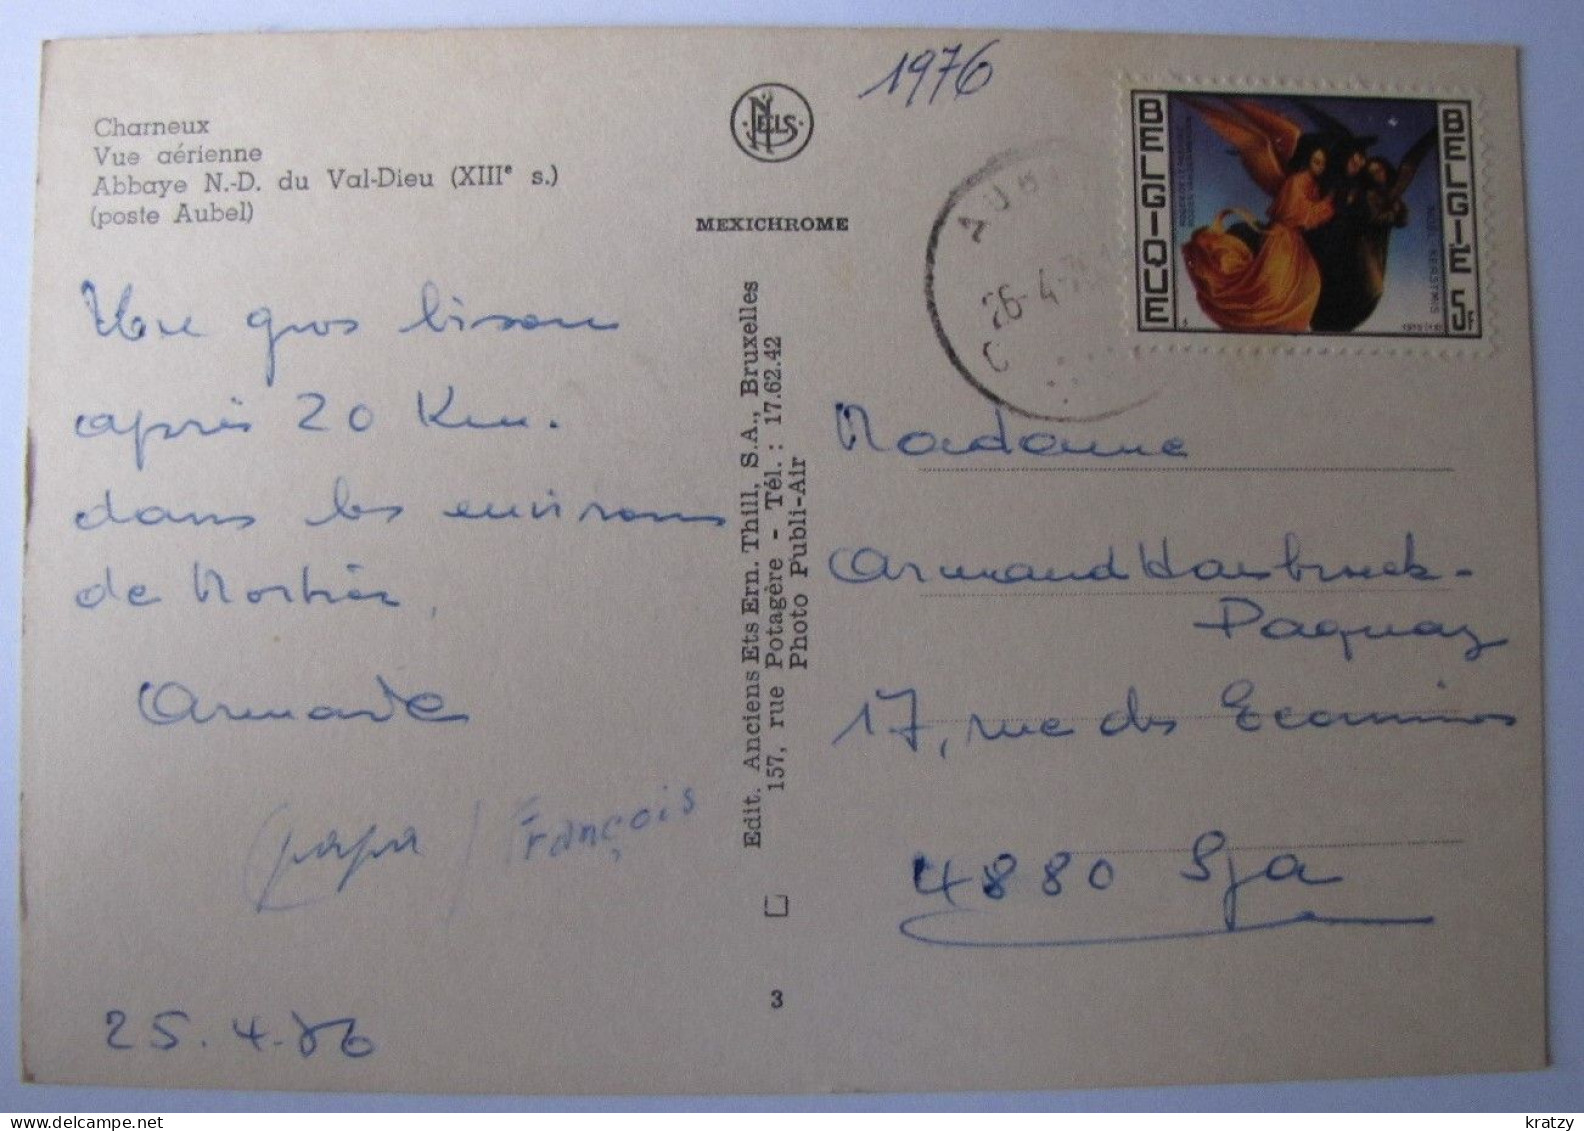 Charneux
Vue aérienne
Abbaye N.-D. du Val-Dieu (XIIIᵉ s.)
(poste Aubel)
NELS
MEXICHROME
1976
26-4-
BELGIQUE
BELGIE 5F
gros bisou
après 20 Km.
dans les environs
de Mortier,
(papa / François
25.4.76
Edit. Anciens Ets Ern. Thill, S.A., Bruxelles
157, rue Potagère - Tél. : 17.62.42
Photo Publi-Air
3
Madame
Armand
17, rue des
4880 Spa
kratzy